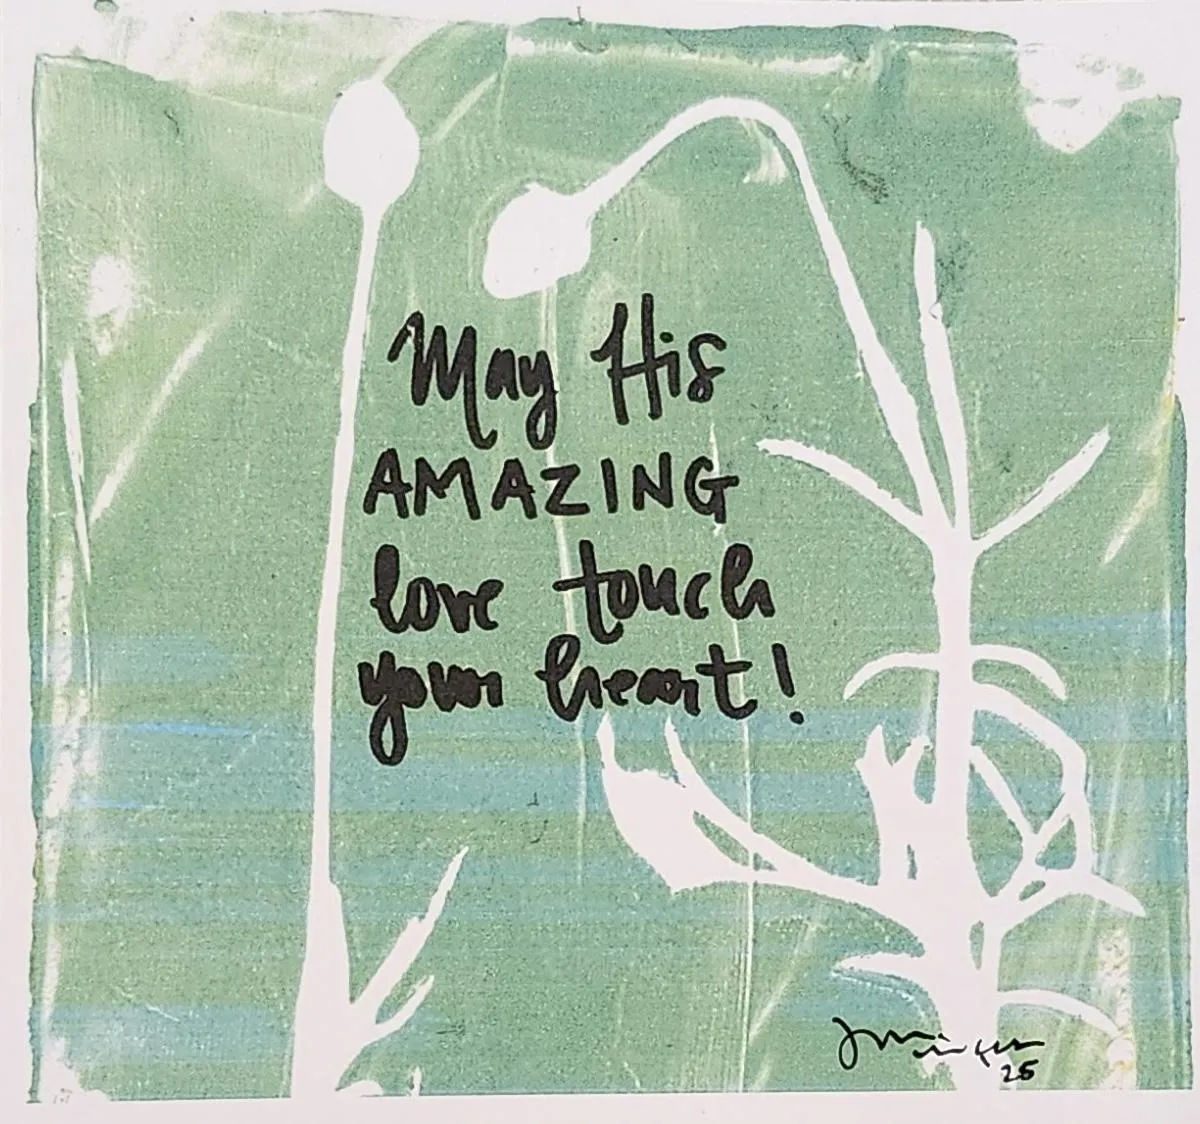 May His
AMAZING
love touch
your heart!
25